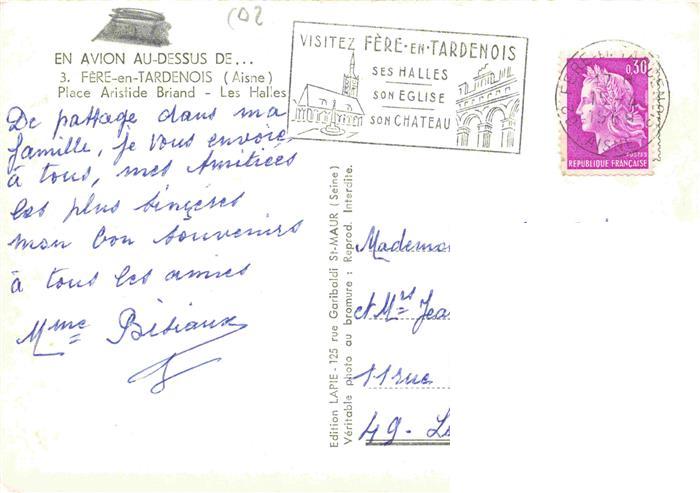 (02
EN AVION AU-DESSUS DE...
3. FÈRE-en-TARDENOIS (Aisne)
Place Aristide Briand - Les Halles
VISITEZ FÈRE-EN-TARDENOIS
SES HALLES
SON EGLISE
SON CHATEAU
0,30
POSTES
REPUBLIQUE FRANÇAISE
De passage dans ma
famille, je vous envoie
à tous, mes Amitiées
les plus sincères
mon bon souvenirs
à tous les amies
Mme
Edition LAPIE - 125 rue Garibaldi St-MAUR (Seine)
Véritable photo au bromure : Reprod. Interdite.
Mademo
et Mrs Jea
11 rue
49 - Le